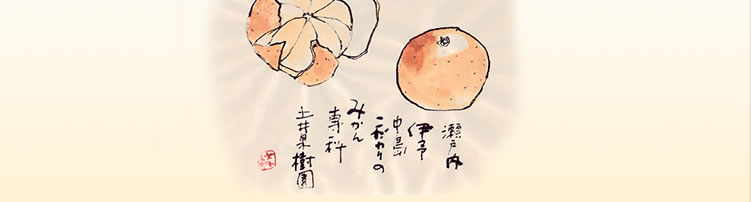 瀬戸内
伊予
中島
こだわりの
みかん
専科
土井果樹園